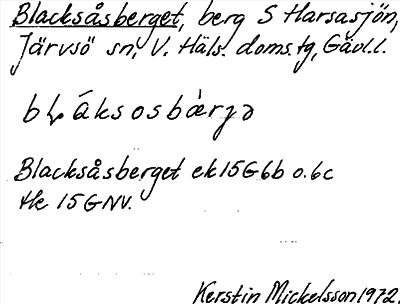 Blacksåsberget, berg S Harsasjön,
Järvsö sn, V. Häls. doms.tg, Gävl.l.
bḷáksosbæ̀rjə
Blacksåsberget ek 15G6b o. 6c
tk 15 G NV.
Kerstin Mickelsson 1972.